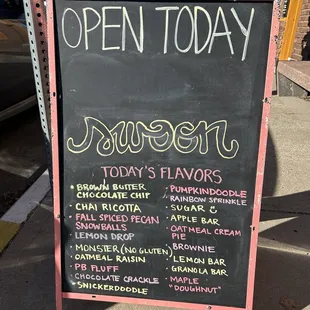 OPEN TODAY
swoon
TODAY'S FLAVORS
BROWN BUTTER
CHOCOLATE CHIP
CHAI RICOTTA
FALL SPICED PECAN
SNOWBALLS
LEMON DROP
MONSTER (NO GLUTEN)
OATMEAL RAISIN
PB FLUFF
CHOCOLATE CRACKLE
SNICKERDOODLE
PUMPKINDOODLE
RAINBOW SPRINKLE
SUGAR
APPLE BAR
OATMEAL CREAM
PIE
BROWNIE
LEMON BAR
GRANOLA BAR
MAPLE
"DOUGHNUT"